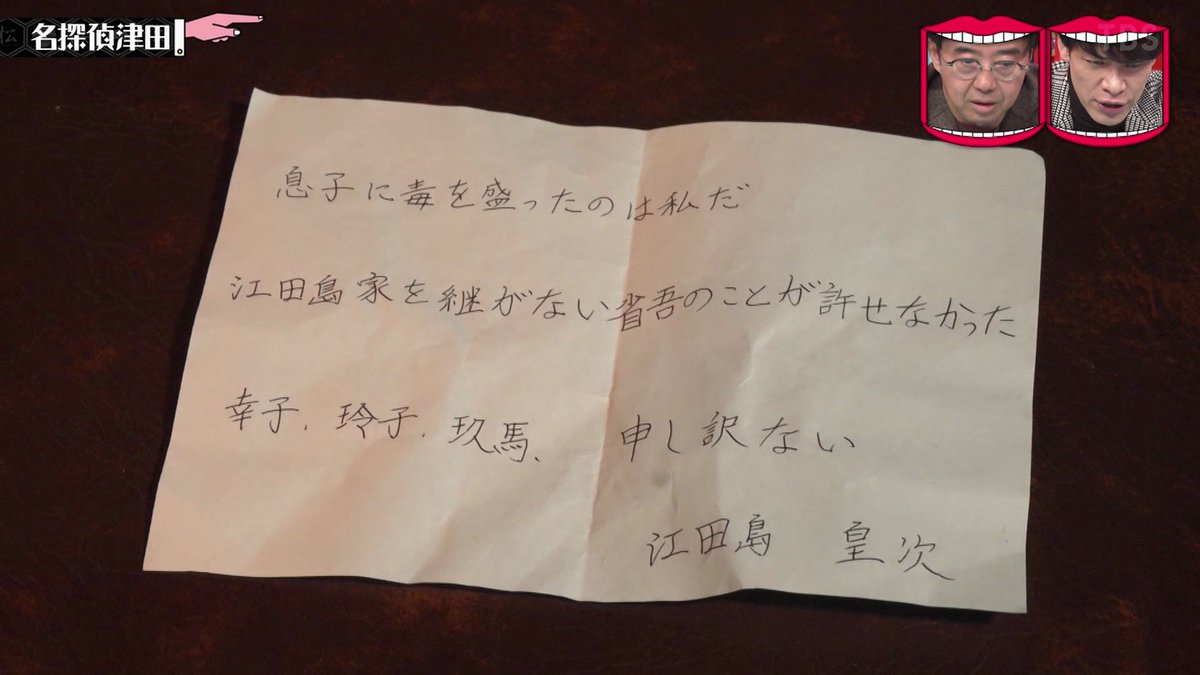 名探偵津田!
TBS
息子に毒を盛ったのは私だ
江田島家を継がない省吾のことが許せなかった
幸子、玲子、玖馬、 申し訳ない
江田島 皇次